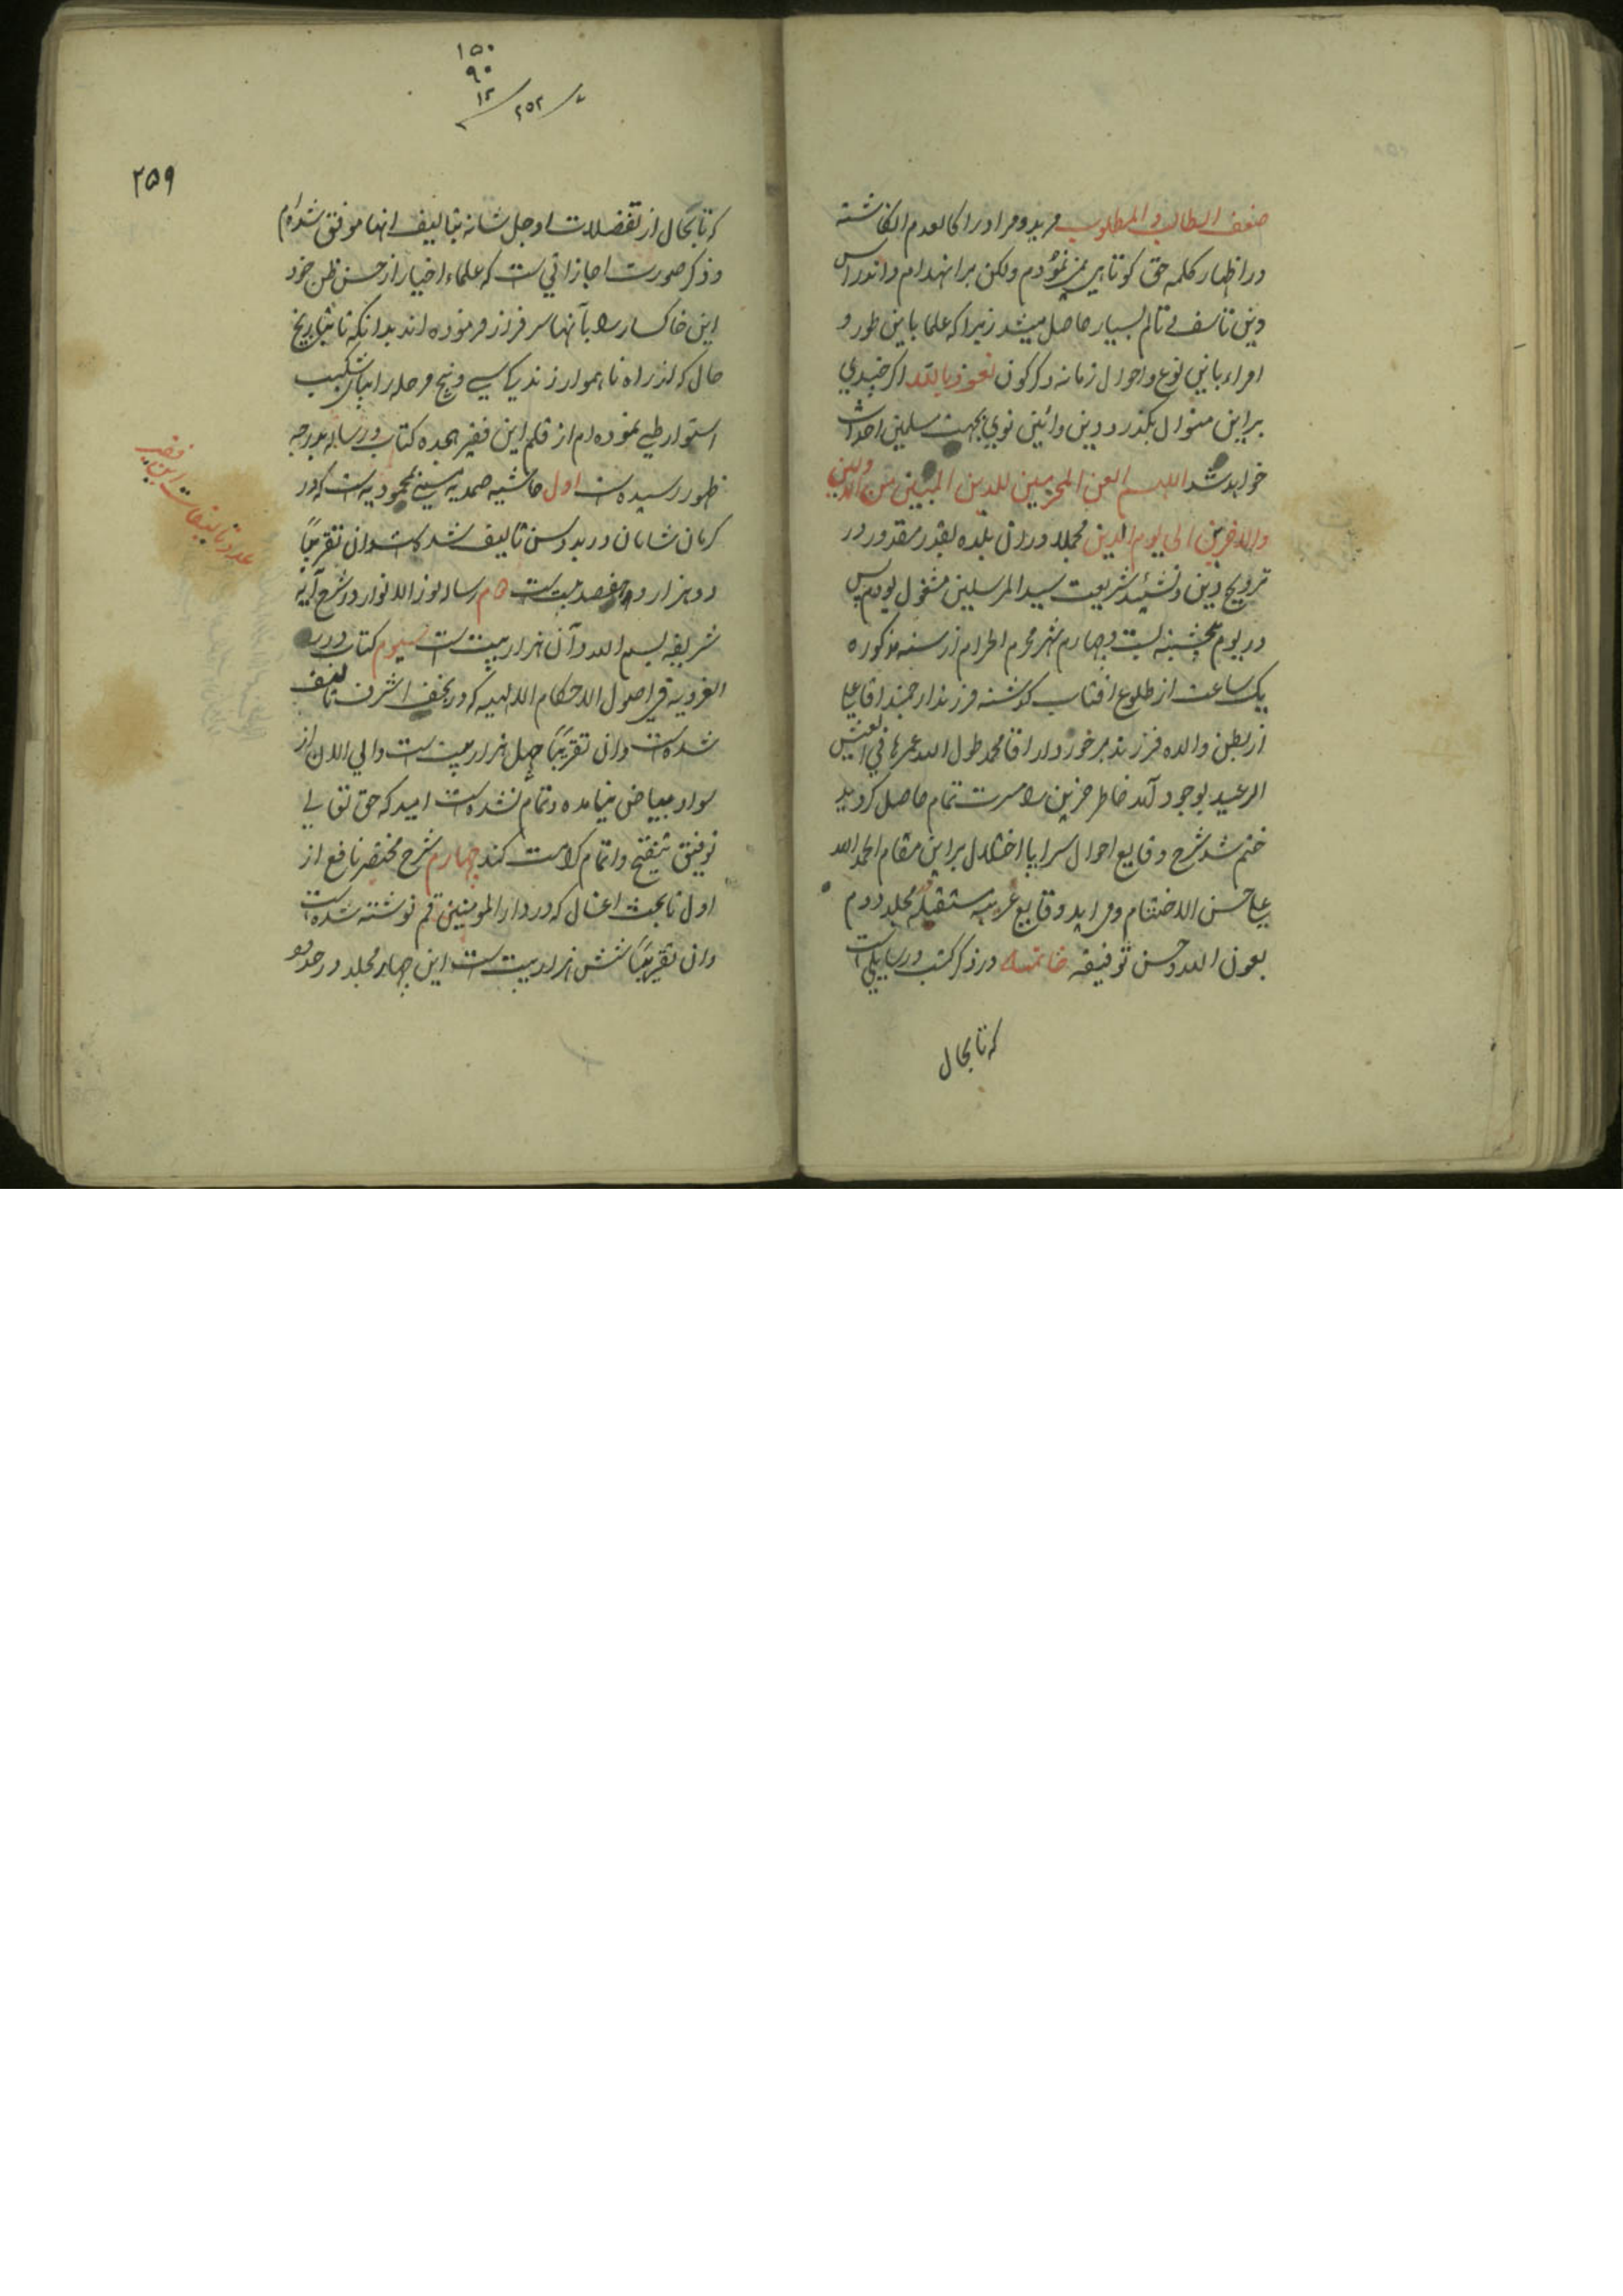 ضعف الطالب و المطلوب مرید و مراد را کالعدم انگاشته
در اظهار کلمه حق کوتاهی نمی‌نمودم ولکن بر انهدام و اندراس
دین تاسف و تالم بسیار حاصل میشد زیرا که علما باین طور و
امراء باین نوع و احوال زمانه دکرکون نعوذ بالله اکر چندی
براین منوال بکذرد دین و ائین نوی بجهت مسلمین احداث
خواهد شد اللهم العن المخربین للدین المبین من الاولین
والاخرین الی یوم الدین مجملا در ان بلده بقدر مقدور در
ترویج دین و تشئید شریعت سید المرسلین مشغول بودم پس
در یوم پنجشنبه بیست و چهارم شهر محرم الحرام از سنه مذکوره
یک ساعت از طلوع افتاب کذشته فرزند ارجمند اقا علی
از بطن والده فرزند برخوردار اقا محمد طول الله عمرهما فی العیش
الرغید بوجود آمد خاطر حزین را مسرت تمام حاصل کردید
ختم شد شرح وقایع احوال سراپا اختلال براین مقام الحمد لله
علی حسن الاختتام و می اید وقایع غریبه مستقبله در مجلد دوم
بعون الله و حسن توفیقه خاتمه در ذکر کتب و رسایلی است
که تا بحال
۱۵۰
۹۰
۱۲
۲۵۲
۲۵۹
که تا بحال از تفضلات او جل شانه بتالیف انها موفق شده‌ام
و ذکر صورت اجازاتی است که علماء اخیار از حسن ظن خود
این خاکسار را بآنها سرفراز فرموده اند بدانکه تا بتاریخ
حال که از راه ناهموار زندیکی سی و پنج مرحله را بپای شکیب
استوار طی نموده ام از قلم این فقیر هجده کتاب و رساله بدرجه
ظهور رسیده است اول حاشیه صمدیه مسمی بمحمودیه است که در
کرمان شاهان در بدو سن تالیف شده است و ان تقریبا
دو هزار و هفصد بیت است دوم رساله نور الانوار در شرح آیه
شریفه بسم الله و آن هزار بیت است سیوم کتاب درر
الغرویه فی اصول الاحکام الالهیه که در نجف اشرف تالیف
شده است و ان تقریبا چهل هزار بیت است و الی الان از
سواد ببیاض نیامده و تمام نشده است امید که حق تعالی
توفیق تنقیح و اتمام کرامت کند چهارم شرح مختصر نافع از
اول تا بحث اغسال که در دار المومنین قم نوشته شده است
وان تقریبا شش هزار بیت است این چهار مجلد در حدود
عدد تالیفات این فقیر